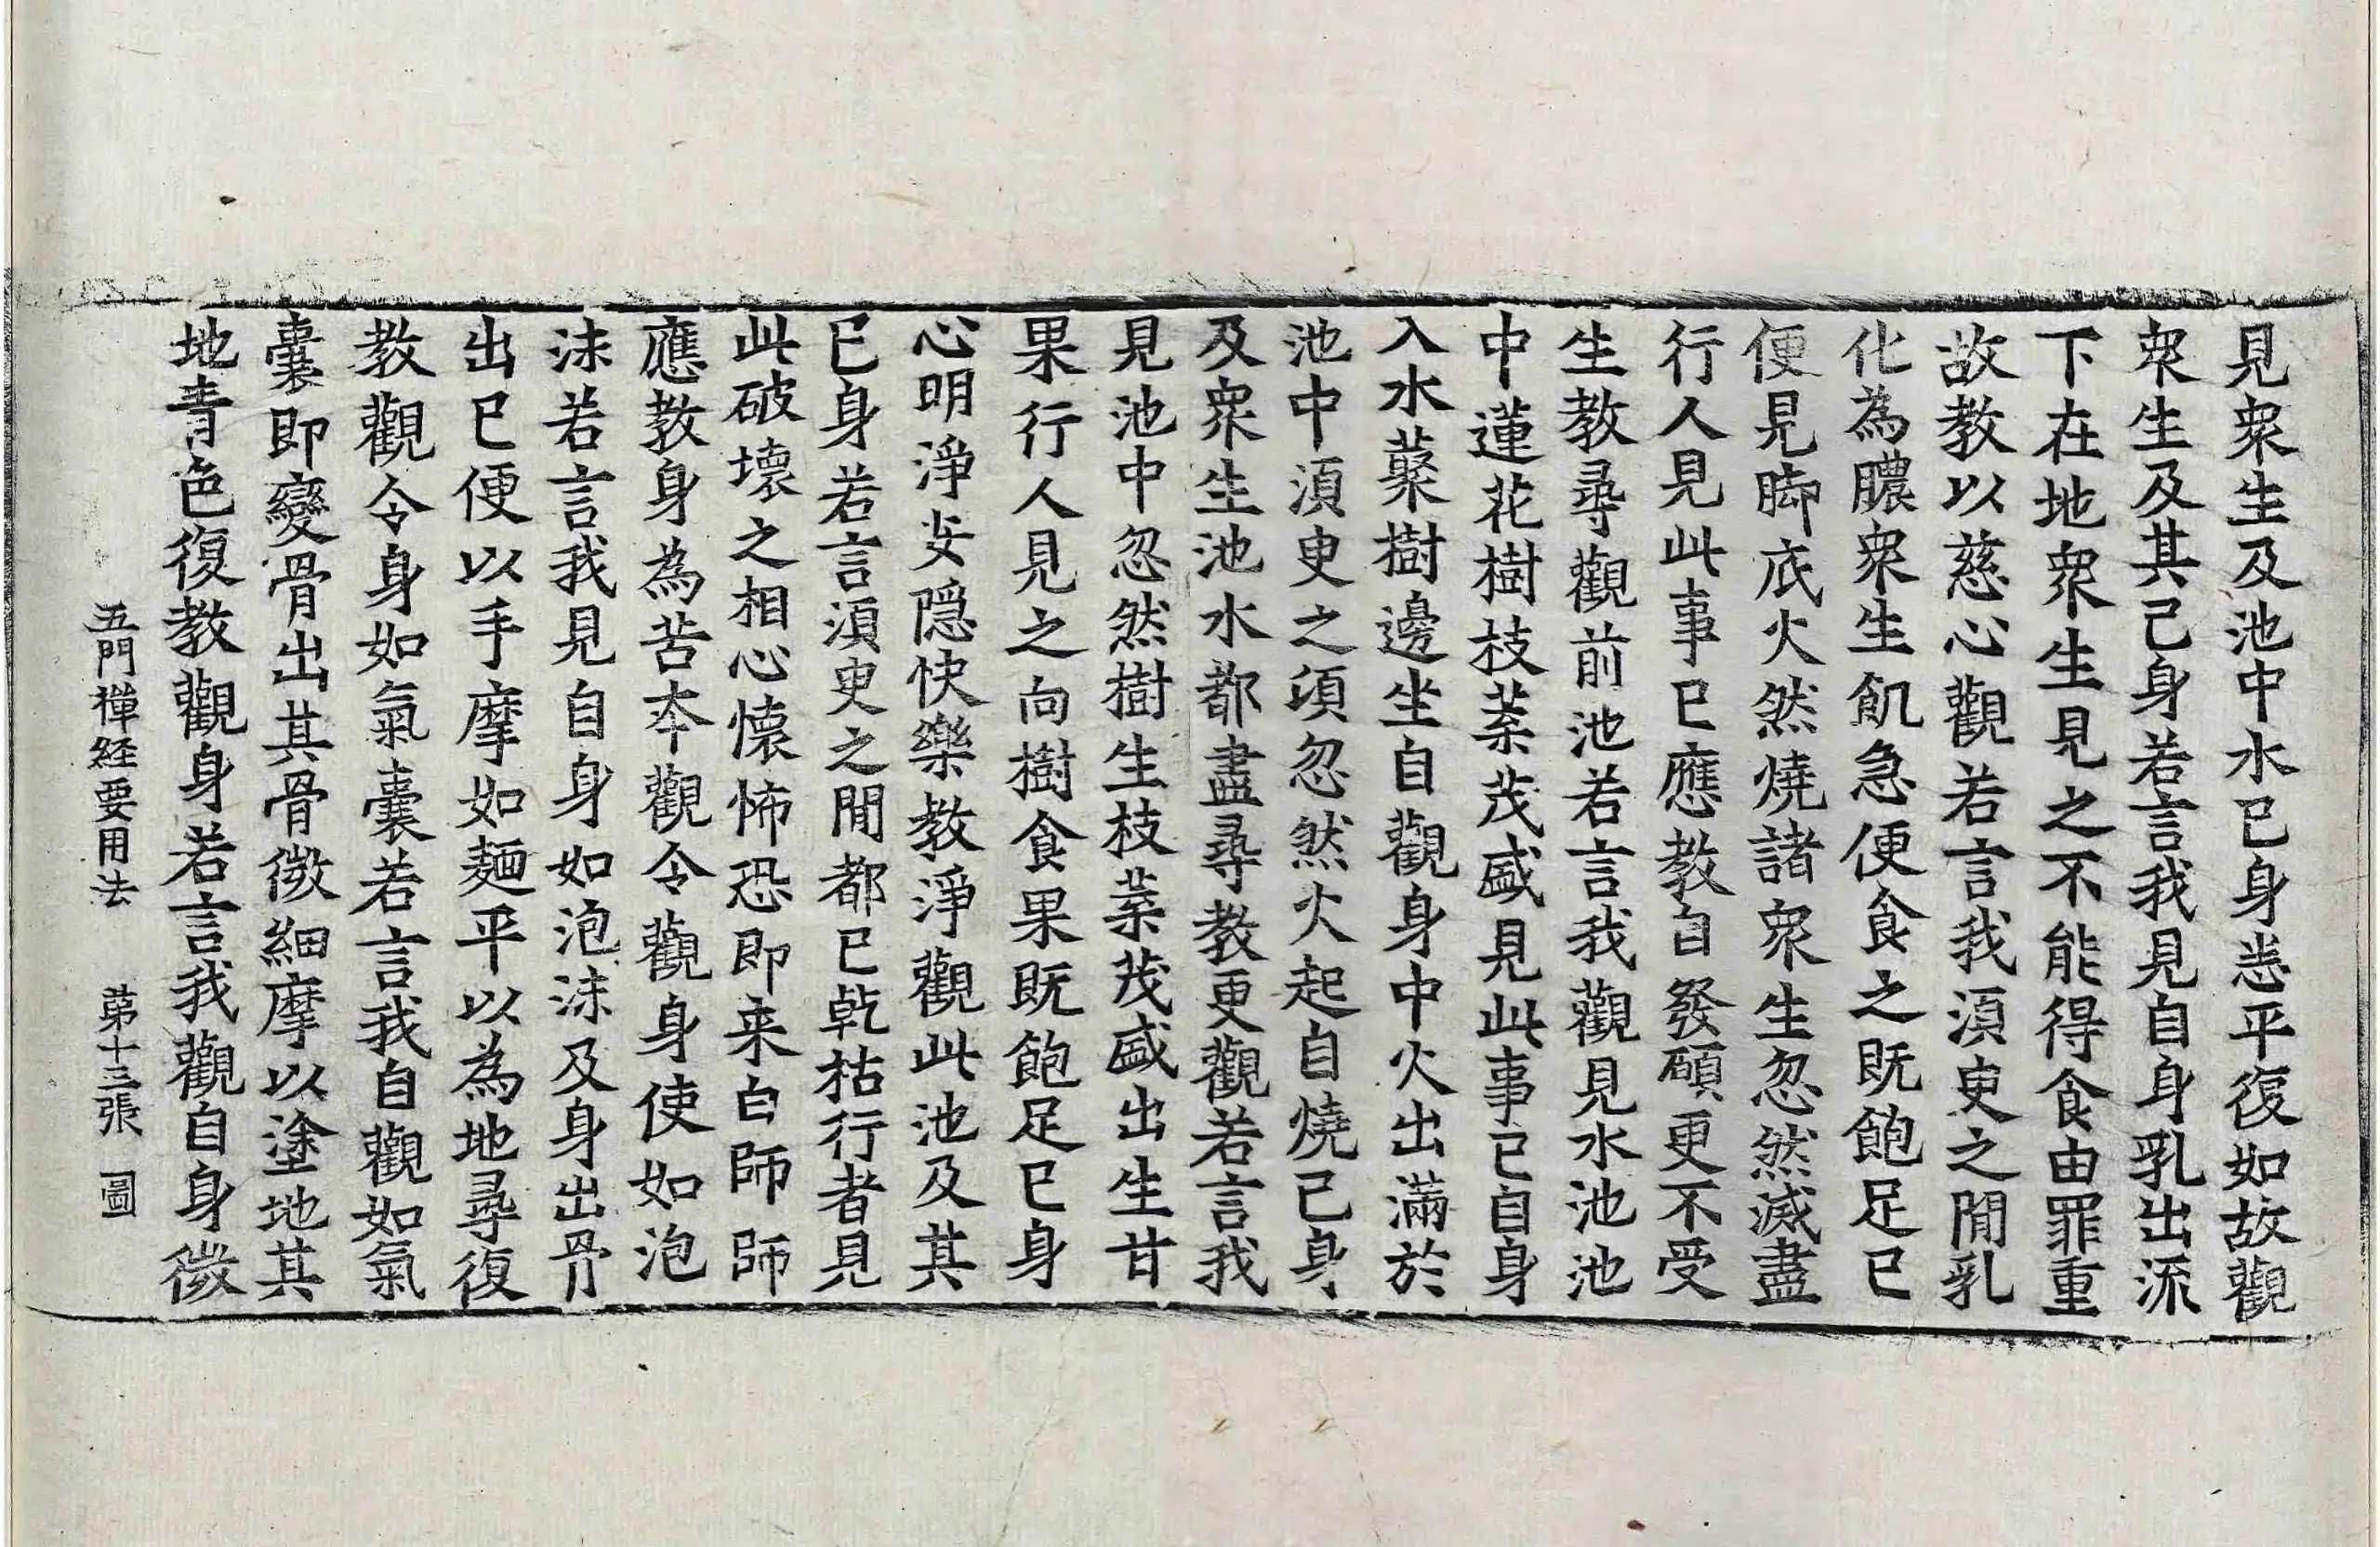 見衆生及池中水已身恙平復如故觀
衆生及其己身若言我見自身乳出流
下在地衆生見之不能得食由罪重
故教以慈心觀若言我須臾之閒乳
化為膿衆生飢急便食之既飽足已
便見脚底火然燒諸衆生忽然滅盡
行人見此事已應教自發願更不受
生教尋觀前池若言我觀見水池池
中蓮花樹枝葉茂盛見此事已自身
入水蘂樹邊坐自觀身中火出滿於
池中須臾之頃忽然火起自燒已身
及衆生池水都盡尋教更觀若言我
見池中忽然樹生枝葉茂盛出生甘
果行人見之向樹食果既飽足已身
心明淨安隱快樂教淨觀此池及其
已身若言須臾之閒都已乾枯行者見
此破壞之相心懷怖恐即来白師師
應教身為苦夲觀令觀身使如泡
沫若言我見自身如泡沫及身出骨
出已便以手摩如麺平以為地尋復
教觀令身如氣囊若言我自觀如氣
囊即變骨出其骨微細摩以塗地其
地青色復教觀身若言我觀自身微
五門禪経要用法　第十三張　圖